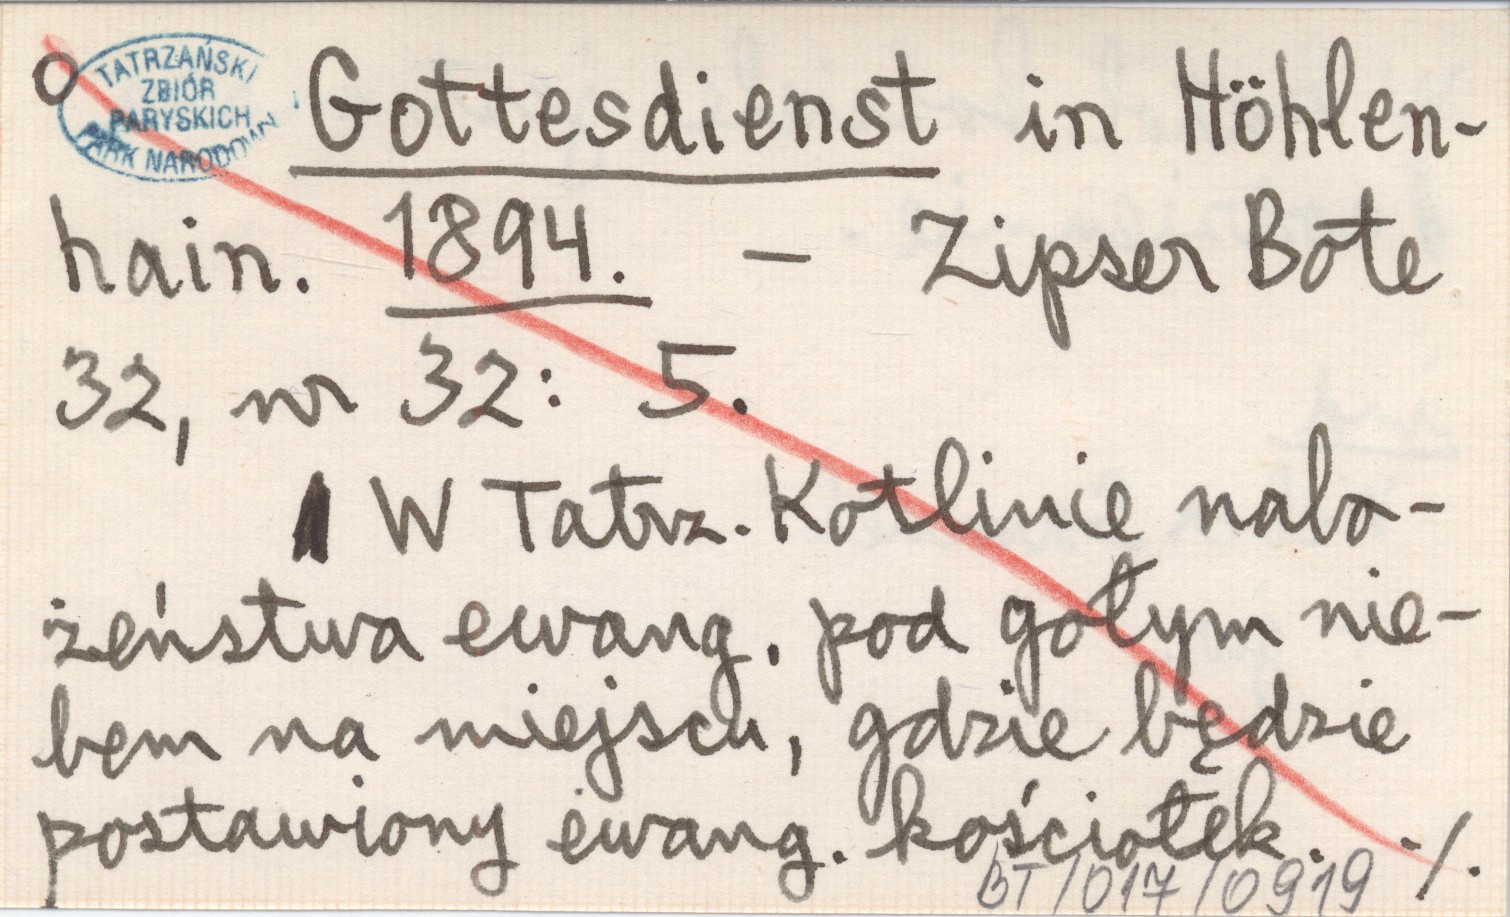 O
TATRZAŃSKI
ZBIÓR
PARYSKICH
PARK NARODOWY
Gottesdienst in Höhlen-
hain. 1894. – Zipser Bote
32, nr 32: 5.
W Tatrz. Kotlinie nabo-
żeństwa ewang. pod gołym nie-
bem na miejscu, gdzie będzie
postawiony ewang. kościołek. ./.
BT/017/0919